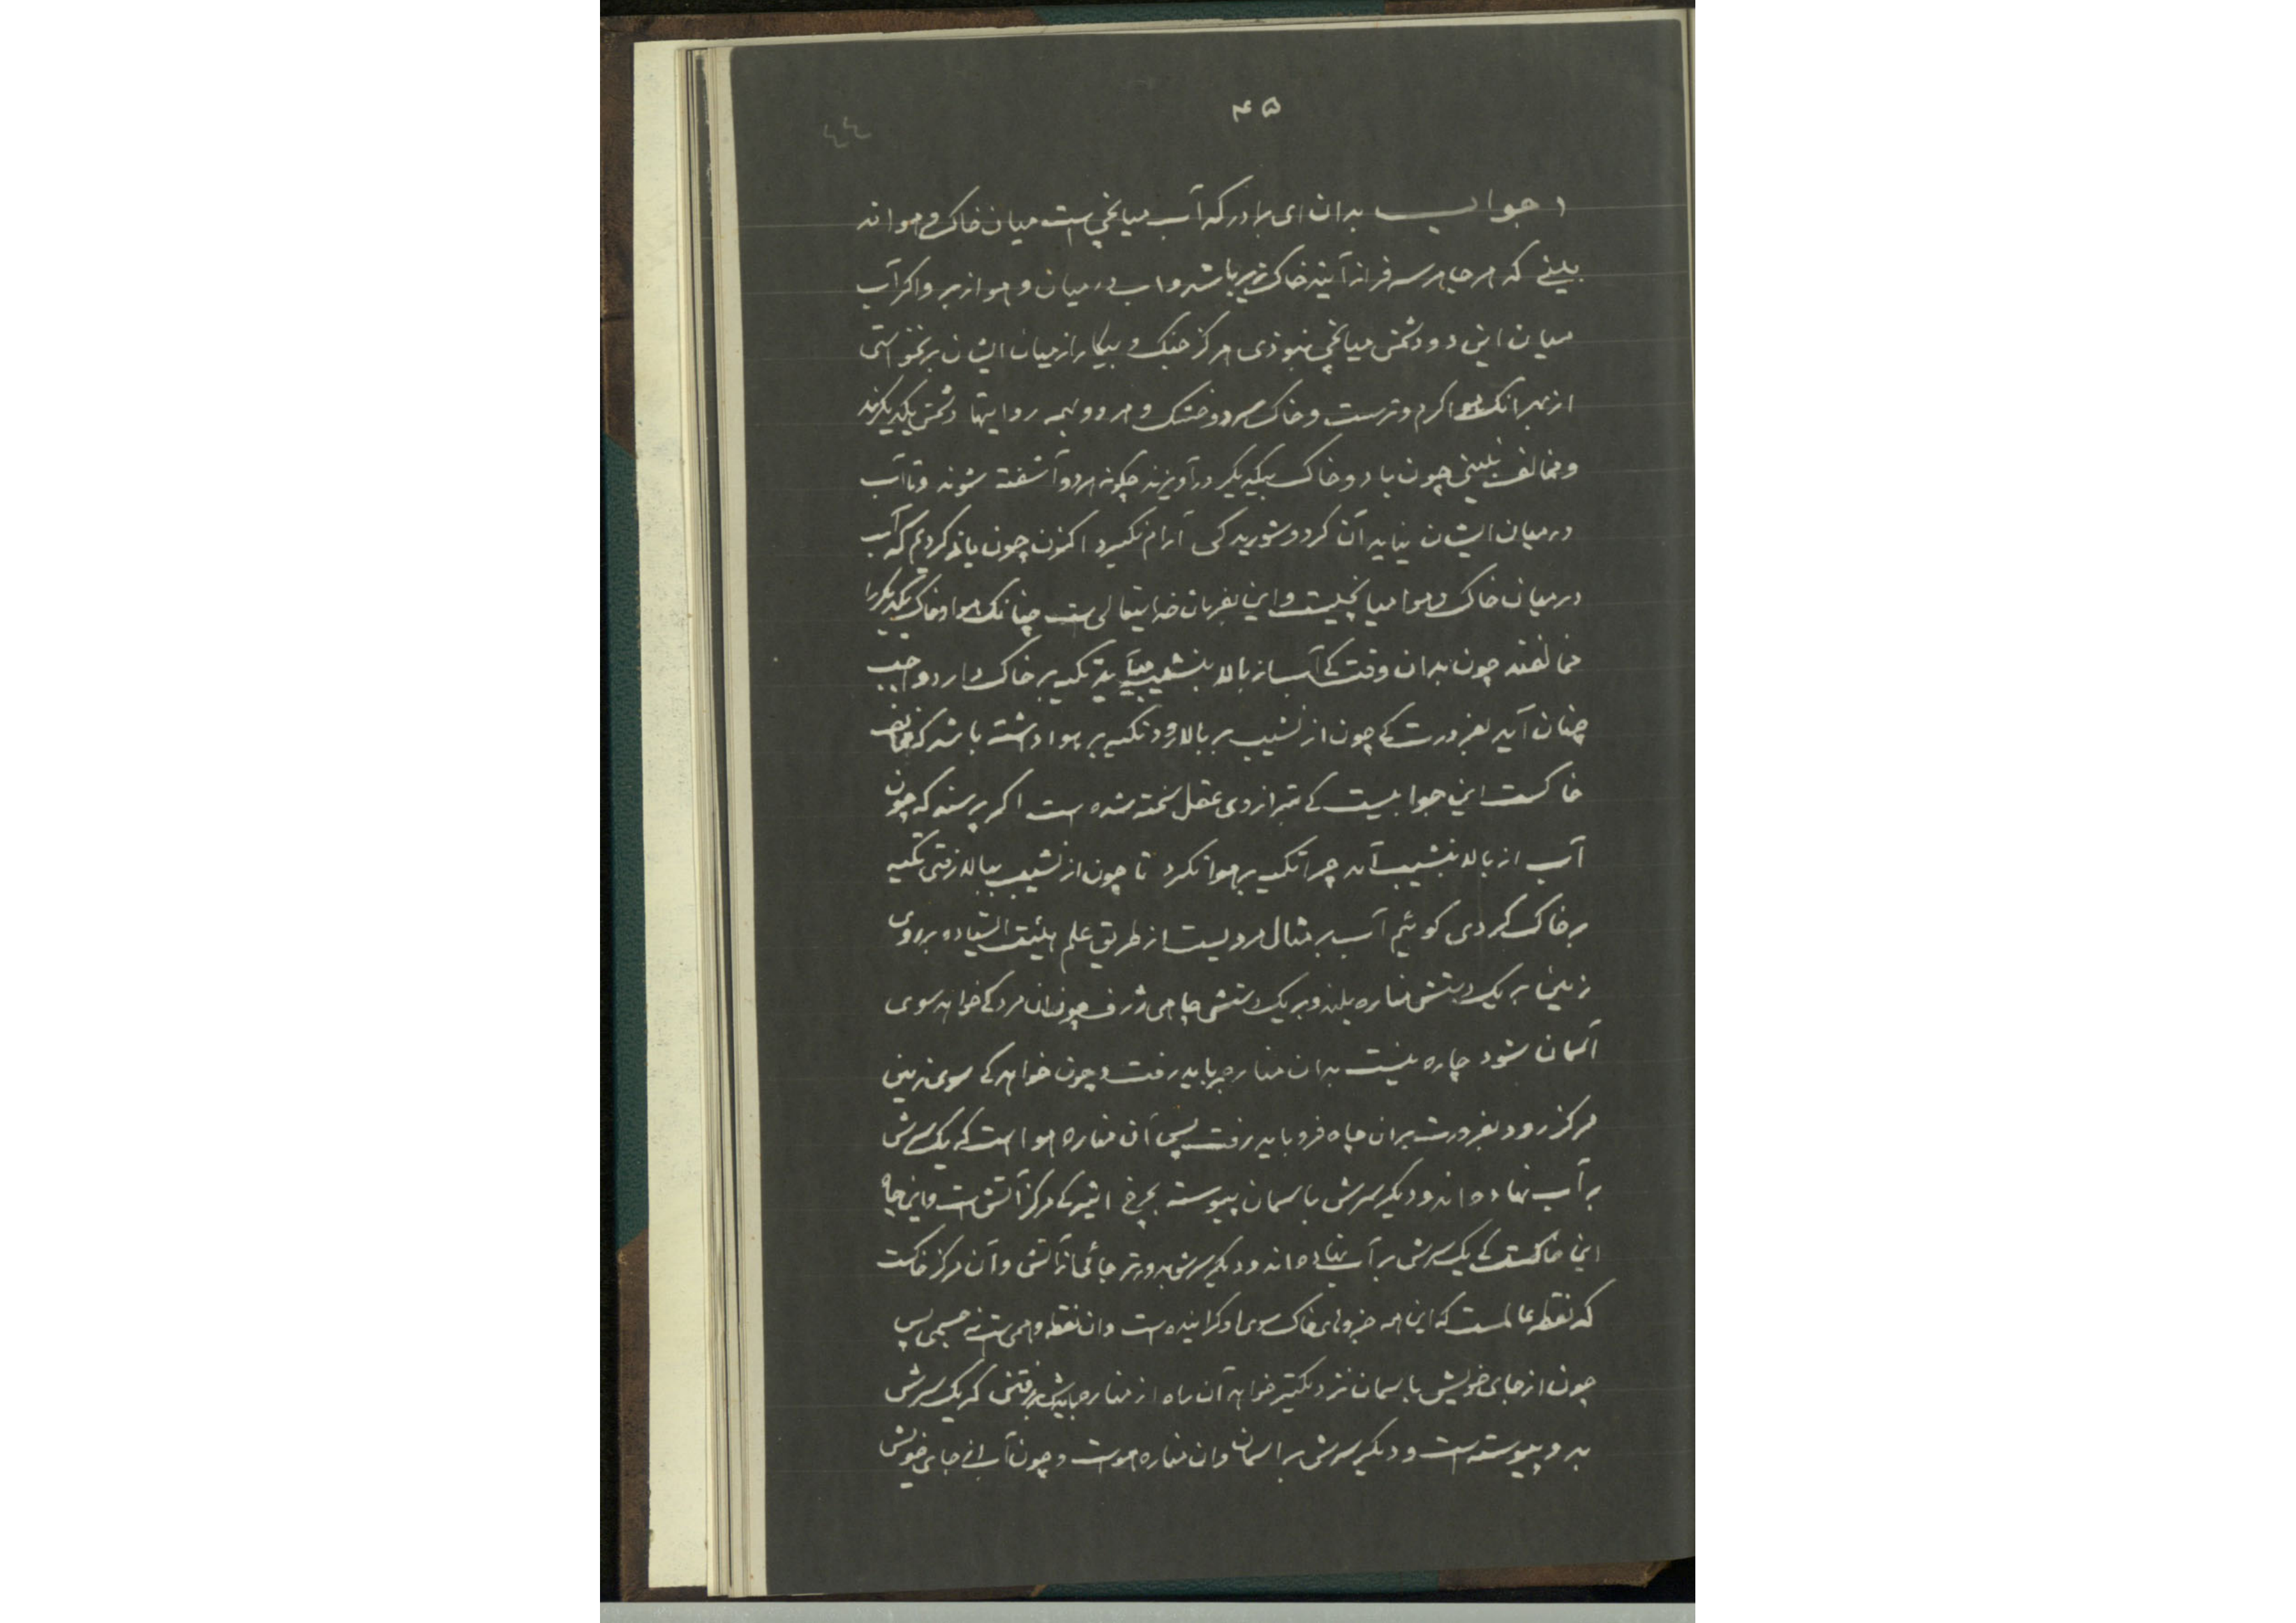 ۴۵
۴۴
جواب بدان ای برادر که آب میانجی است میان خاک و هوا نه
بینی که هر جا هر سه فراز آیند خاک زیر باشد و اب در میان و هوا زبر و اکر آب
میان این دو دشمن میانجی نبوذی هرکز جنک و بیکار از میان ایشان برنخواستی
از بهر آنک هوا کرم و ترست و خاک سرد و خشک و هر دو بهمه روایتها دشمن یکدیکرند
و مخالف نبینی چون باد و خاک بیکدیکر در آویزند چکونه هر دو آشفته شوند و تا آب
در میان ایشان نیاید آن کرد و شوریدکی آرام نکیرد اکنون چون یاد کردیم که آب
در میان خاک و هوا میانجیست و این بفرمان خدایتعالی است چنانک هوا و خاک یکدیکر را
مخالفند چون بدان وقت کی آب از بالا بنشیب میآید تکیه بر خاک دارد واجب
چنان آید بضرورت کی چون از نشیب بر بالا رود تکیه بر هوا داشته باشد که مخالف
خاکست این جوابیست کی بترازوی عقل سخته شده است اکر پرسند که چون
آب از بالا بنشیب آمد چرا تکیه بر هوا نکرد تا چون از نشیب ببالا رفتی تکیه
بر خاک کردی کوئیم آب بر مثال مردیست از طریق علم هیئت ایستاده بر روی
زمین بر یک دستش مناره بلند و بر یک دستش چاهی ژرف چون ان مرد کی خواهد سوی
آسمان شود چاره نیست بدان مناره بر باید رفت و چون خواهد کی سوی زمین
مرکز رود بضرورت بران چاه فرو باید رفت پس آن مناره هوا است که یک سرش
بر آب نهاده اند و دیکر سرش باسمان پیوسته بچرخ اثیر کی مرکز آتش است و این چاه
این خاکست کی یک سرش بر آب نهاده اند و دیکر سرش بدورتر جائی از آتش و آن مرکز خاکست
که نقطه عالمست که این همه جزوهای خاک سوی او کراینده است و ان نقطه وهمی است نه جسمی پس
چون از جای خویش باسمان نزدیکتر خواهد آن راه از مناره بایدش رفتن که یک سرش
بدو پیوسته است و دیکر سرش بر اسمان وان مناره هوست و چون آب از جای خویش